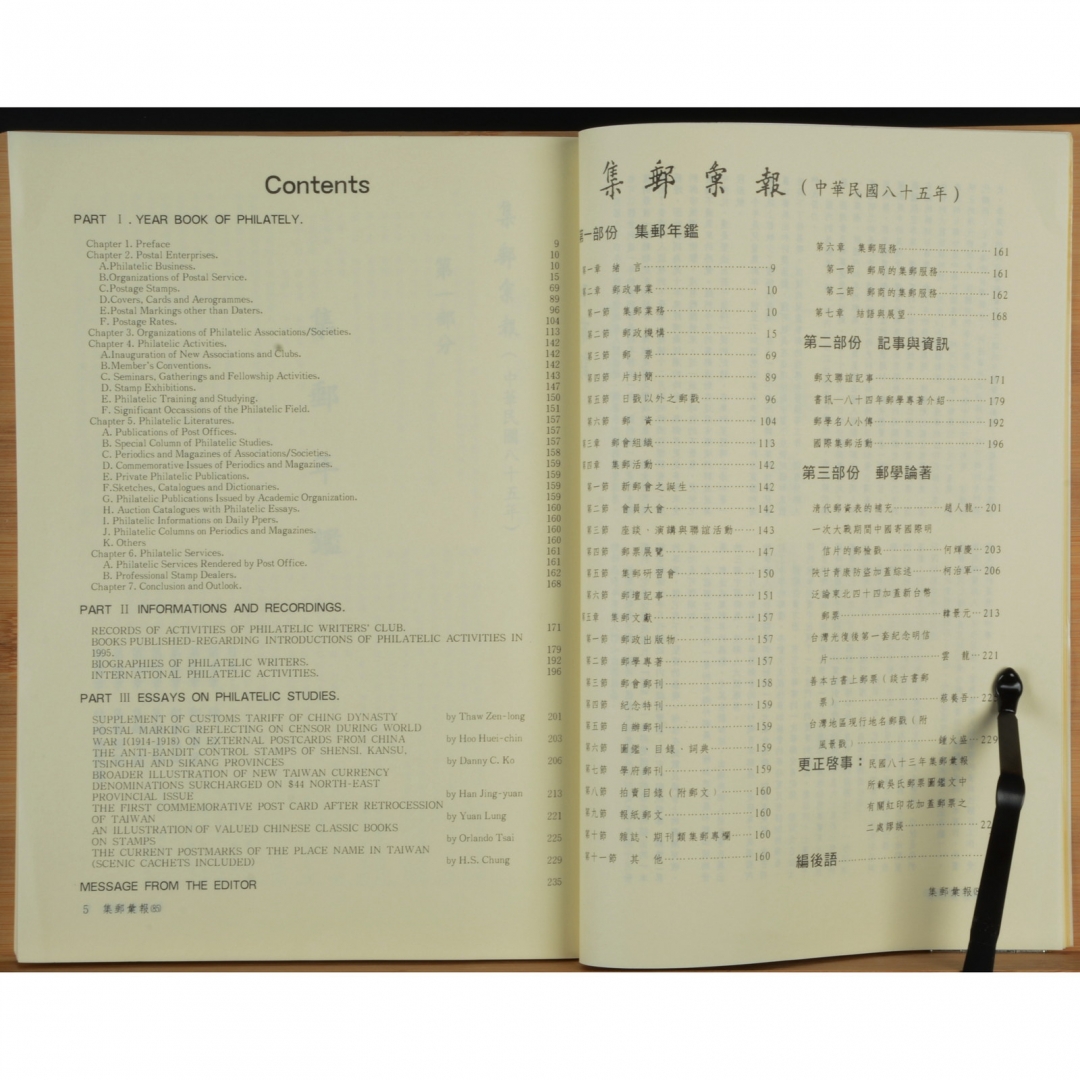 Contents
PART Ⅰ. YEAR BOOK OF PHILATELY.
Chapter 1. Preface 9
Chapter 2. Postal Enterprises. 10
A.Philatelic Business. 10
B.Organizations of Postal Service. 15
C.Postage Stamps. 69
D.Covers, Cards and Aerogrammes. 89
E.Postal Markings other than Daters. 96
F. Postage Rates. 104
Chapter 3. Organizations of Philatelic Associations/Societies. 113
Chapter 4. Philatelic Activities. 142
A.Inauguration of New Associations and Clubs. 142
B.Member's Conventions. 142
C. Seminars, Gatherings and Fellowship Activities. 143
D. Stamp Exhibitions. 147
E. Philatelic Training and Studying. 150
F. Significant Occassions of the Philatelic Field. 151
Chapter 5. Philatelic Literatures. 157
A. Publications of Post Offices. 157
B. Special Column of Philatelic Studies. 157
C. Periodics and Magazines of Associations/Societies. 158
D. Commemorative Issues of Periodics and Magazines. 159
E. Private Philatelic Publications. 159
F.Sketches, Catalogues and Dictionaries. 159
G. Philatelic Publications Issued by Academic Organization. 159
H. Auction Catalogues with Philatelic Essays. 160
I. Philatelic Informations on Daily Ppers. 160
J. Philatelic Columns on Periodics and Magazines. 160
K. Others 160
Chapter 6. Philatelic Services. 161
A. Philatelic Services Rendered by Post Office. 161
B. Professional Stamp Dealers. 162
Chapter 7. Conclusion and Outlook. 168
PART Ⅱ INFORMATIONS AND RECORDINGS.
RECORDS OF ACTIVITIES OF PHILATELIC WRITERS' CLUB. 171
BOOKS PUBLISHED-REGARDING INTRODUCTIONS OF PHILATELIC ACTIVITIES IN
1995. 179
BIOGRAPHIES OF PHILATELIC WRITERS. 192
INTERNATIONAL PHILATELIC ACTIVITIES. 196
PART Ⅲ ESSAYS ON PHILATELIC STUDIES.
SUPPLEMENT OF CUSTOMS TARIFF OF CHING DYNASTY by Thaw Zen-long 201
POSTAL MARKING REFLECTING ON CENSOR DURING WORLD
WAR I(1914-1918) ON EXTERNAL POSTCARDS FROM CHINA by Hoo Huei-chin 203
THE ANTI-BANDIT CONTROL STAMPS OF SHENSI, KANSU,
TSINGHAI AND SIKANG PROVINCES by Danny C. Ko 206
BROADER ILLUSTRATION OF NEW TAIWAN CURRENCY
DENOMINATIONS SURCHARGED ON $44 NORTH-EAST
PROVINCIAL ISSUE by Han Jing-yuan 213
THE FIRST COMMEMORATIVE POST CARD AFTER RETROCESSION
OF TAIWAN by Yuan Lung 221
AN ILLUSTRATION OF VALUED CHINESE CLASSIC BOOKS
ON STAMPS by Orlando Tsai 225
THE CURRENT POSTMARKS OF THE PLACE NAME IN TAIWAN
(SCENIC CACHETS INCLUDED) by H.S. Chung 229
MESSAGE FROM THE EDITOR 235
5 集郵彙報85
集郵彙報(中華民國八十五年)
第一部份 集郵年鑑
第一章 緒言 9
第二章 郵政事業 10
第一節 集郵業務 10
第二節 郵政機構 15
第三節 郵票 69
第四節 片封簡 89
第五節 日戳以外之郵戳 96
第六節 郵資 104
第三章 郵會組織 113
第四章 集郵活動 142
第一節 新郵會之誕生 142
第二節 會員大會 142
第三節 座談、演講與聯誼活動 143
第四節 郵票展覽 147
第五節 集郵研習會 150
第六節 郵壇記事 151
第五章 集郵文獻 157
第一節 郵政出版物 157
第二節 郵學專著 157
第三節 郵會郵刊 158
第四節 紀念特刊 159
第五節 自辦郵刊 159
第六節 圖鑑、目錄、詞典 159
第七節 學府郵刊 159
第八節 拍賣目錄(附郵文) 160
第九節 報紙郵文 160
第十節 雜誌、期刊類集郵專欄 160
第十一節 其他 160
第六章 集郵服務 161
第一節 郵局的集郵服務 161
第二節 郵商的集郵服務 162
第七章 結語與展望 168
第二部份 記事與資訊
郵文聯誼記事 171
書訊—八十四年郵學專著介紹 179
郵學名人小傳 192
國際集郵活動 196
第三部份 郵學論著
清代郵資表的補充 趙人龍 201
一次大戰期間中國寄國際明
信片的郵檢戳 何輝慶 203
陝甘青康防盜加蓋綜述 柯治軍 206
泛論東北四十四加蓋新台幣
郵票 韓景元 213
台灣光復後第一套紀念明信
片 雲龍 221
善本古書上郵票(談古書郵
票) 蔡養吾 22
台灣地區現行地名郵戳(附
風景戳) 鍾火盛 229
更正啓事:民國八十三年集郵彙報
所載吳氏郵票圖鑑文中
有關紅印花加蓋郵票之
二處謬誤 22
編後語
集郵彙報